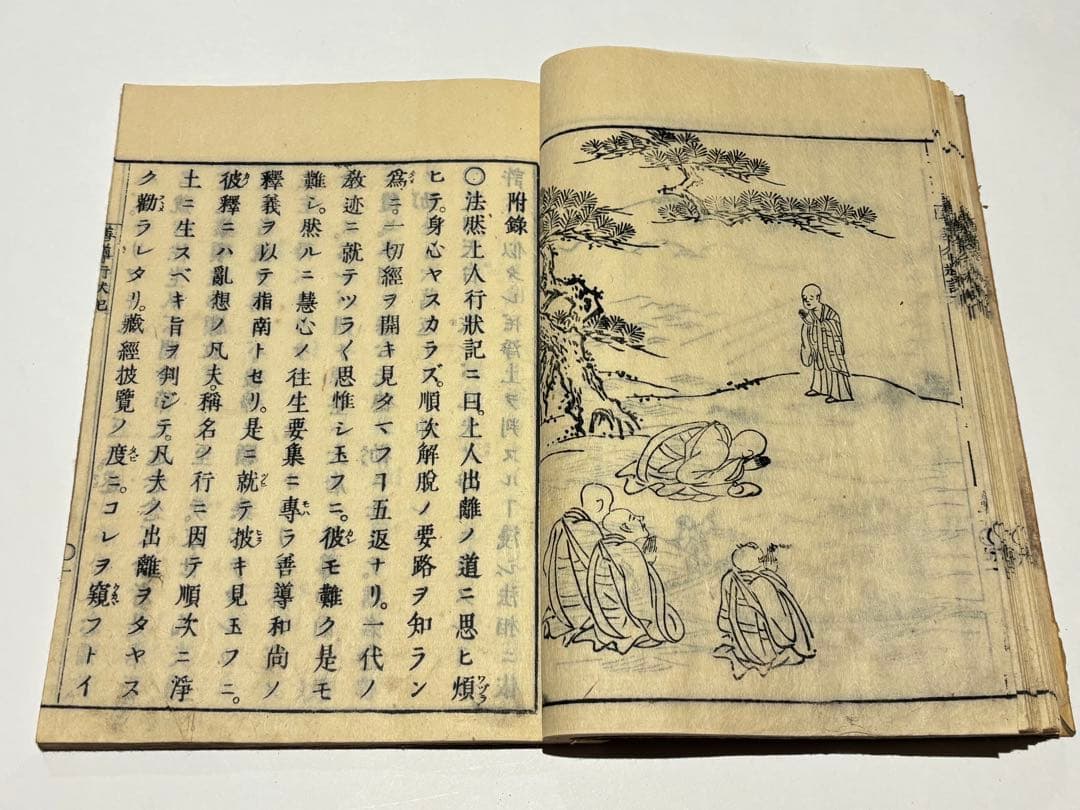 附錄
〇法然上人行狀記ニ曰。上人出離ノ道ニ思ヒ煩ワヅラ
ヒテ。身心ヤスカラズ。順次解脱ノ要路ヲ知ラン
爲ニ。一切經ヲ開キ見タマフヿ五返ナリ。一代ノ
敎迹ニ就テツラ〱思惟シ玉フニ。彼モ難ク是モ
難シ。然ルニ慧心ノ往生要集ニ專モハラ善導和尚ノ
釋義ヲ以テ指南トセリ。是ニ就テ披ヒラキ見玉フニ。
彼釋ニハ亂想ノ凡夫。稱名ノ行ニ因テ順次ニ淨
土ニ生スベキ旨ヲ判ジテ。凡夫ノ出離ヲタヤス
ク勸ラレタリ。藏經披覽ノ度タビニ。コレヲ窺フトイ